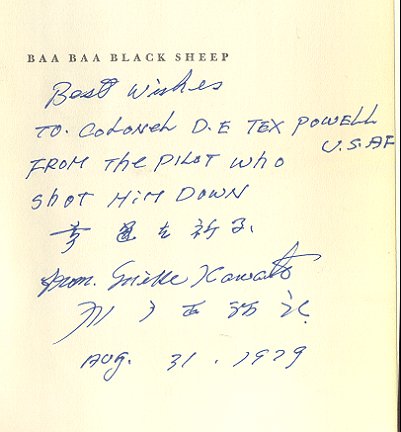 BAA BAA BLACK SHEEP
Best Wishes
TO. COLONEL D.E TEX POWELL
U.S.AF
FROM the PILOT WHO
SHOT HIM DOWN
幸運を祈る.
From. Mike Kawato
川戸正治郎
AUG. 31. 1979